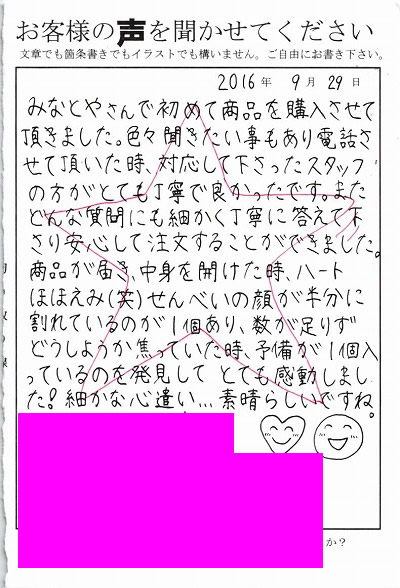 お客様の声を聞かせてください
文章でも箇条書きでもイラストでも構いません。ご自由にお書き下さい。
2016年 9月 29日
みなとやさんで初めて商品を購入させて
頂きました。色々聞きたい事もあり電話さ
せて頂いた時、対応して下さったスタッフ
の方がとても丁寧で良かったです。また
どんな質問にも細かく丁寧に答えて下
さり安心して注文することができました。
商品が届き、中身を開けた時、ハート
ほほえみ(笑)せんべいの顔が半分に
割れているのが1個あり、数が足りず
どうしようか焦っていた時、予備が1個入
っているのを発見して とても感動しまし
た!細かな心遣い…素晴らしいですね。
か?